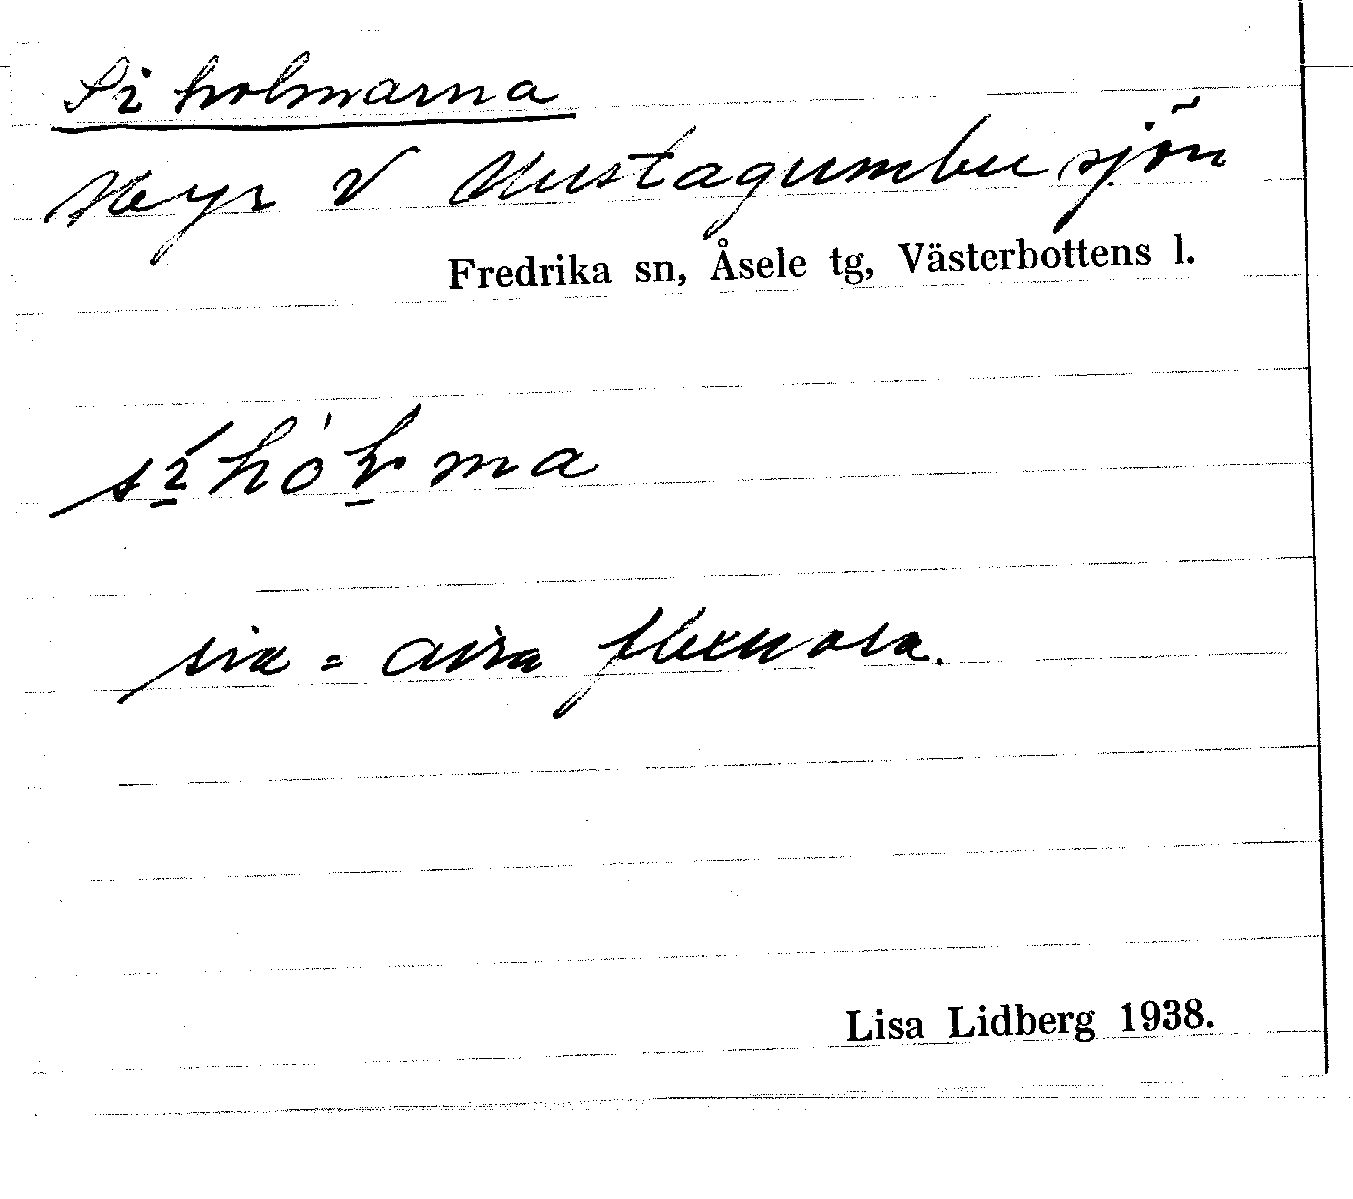 Siholmarna
Myr V Mustagumbusjön
Fredrika sn, Åsele tg, Västerbottens l.
sia = aira flexuosa.
Lisa Lidberg 1938.